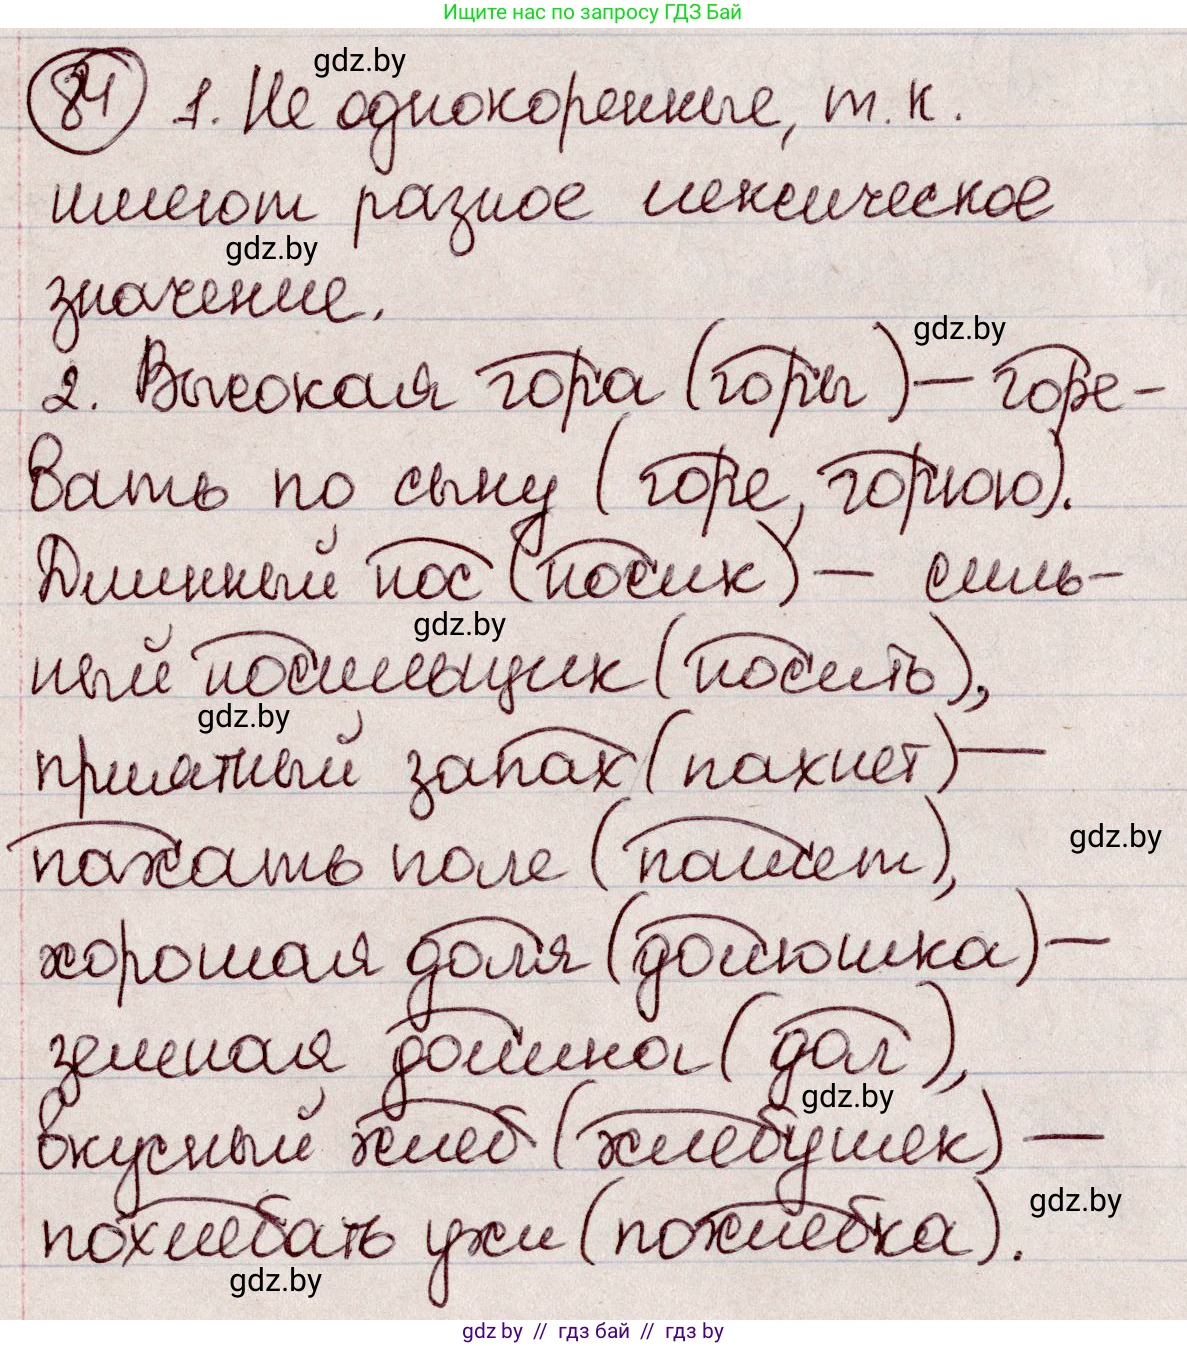 Ищите нас по запросу ГДЗ Бай
gdz.by
84 1. Не однокоренные, т. к.
имеют разное лексическое
gdz.by
значение.
gdz.by
2. Высокая гора (горы) – горе-
вать по сыну (горе, горюю).
Длинный нос (носик) – силь-
gdz.by
ный носильщик (носить),
gdz.by
приятный запах (пахнет) –
gdz.by
пахать поле (пашет),
хорошая доля (долюшка) –
земная долина (дол),
gdz.by
вкусный хлеб (хлебушек) –
gdz.by
похлебать ухи (похлебка).
gdz.by
gdz by // гдз бай // гдз by